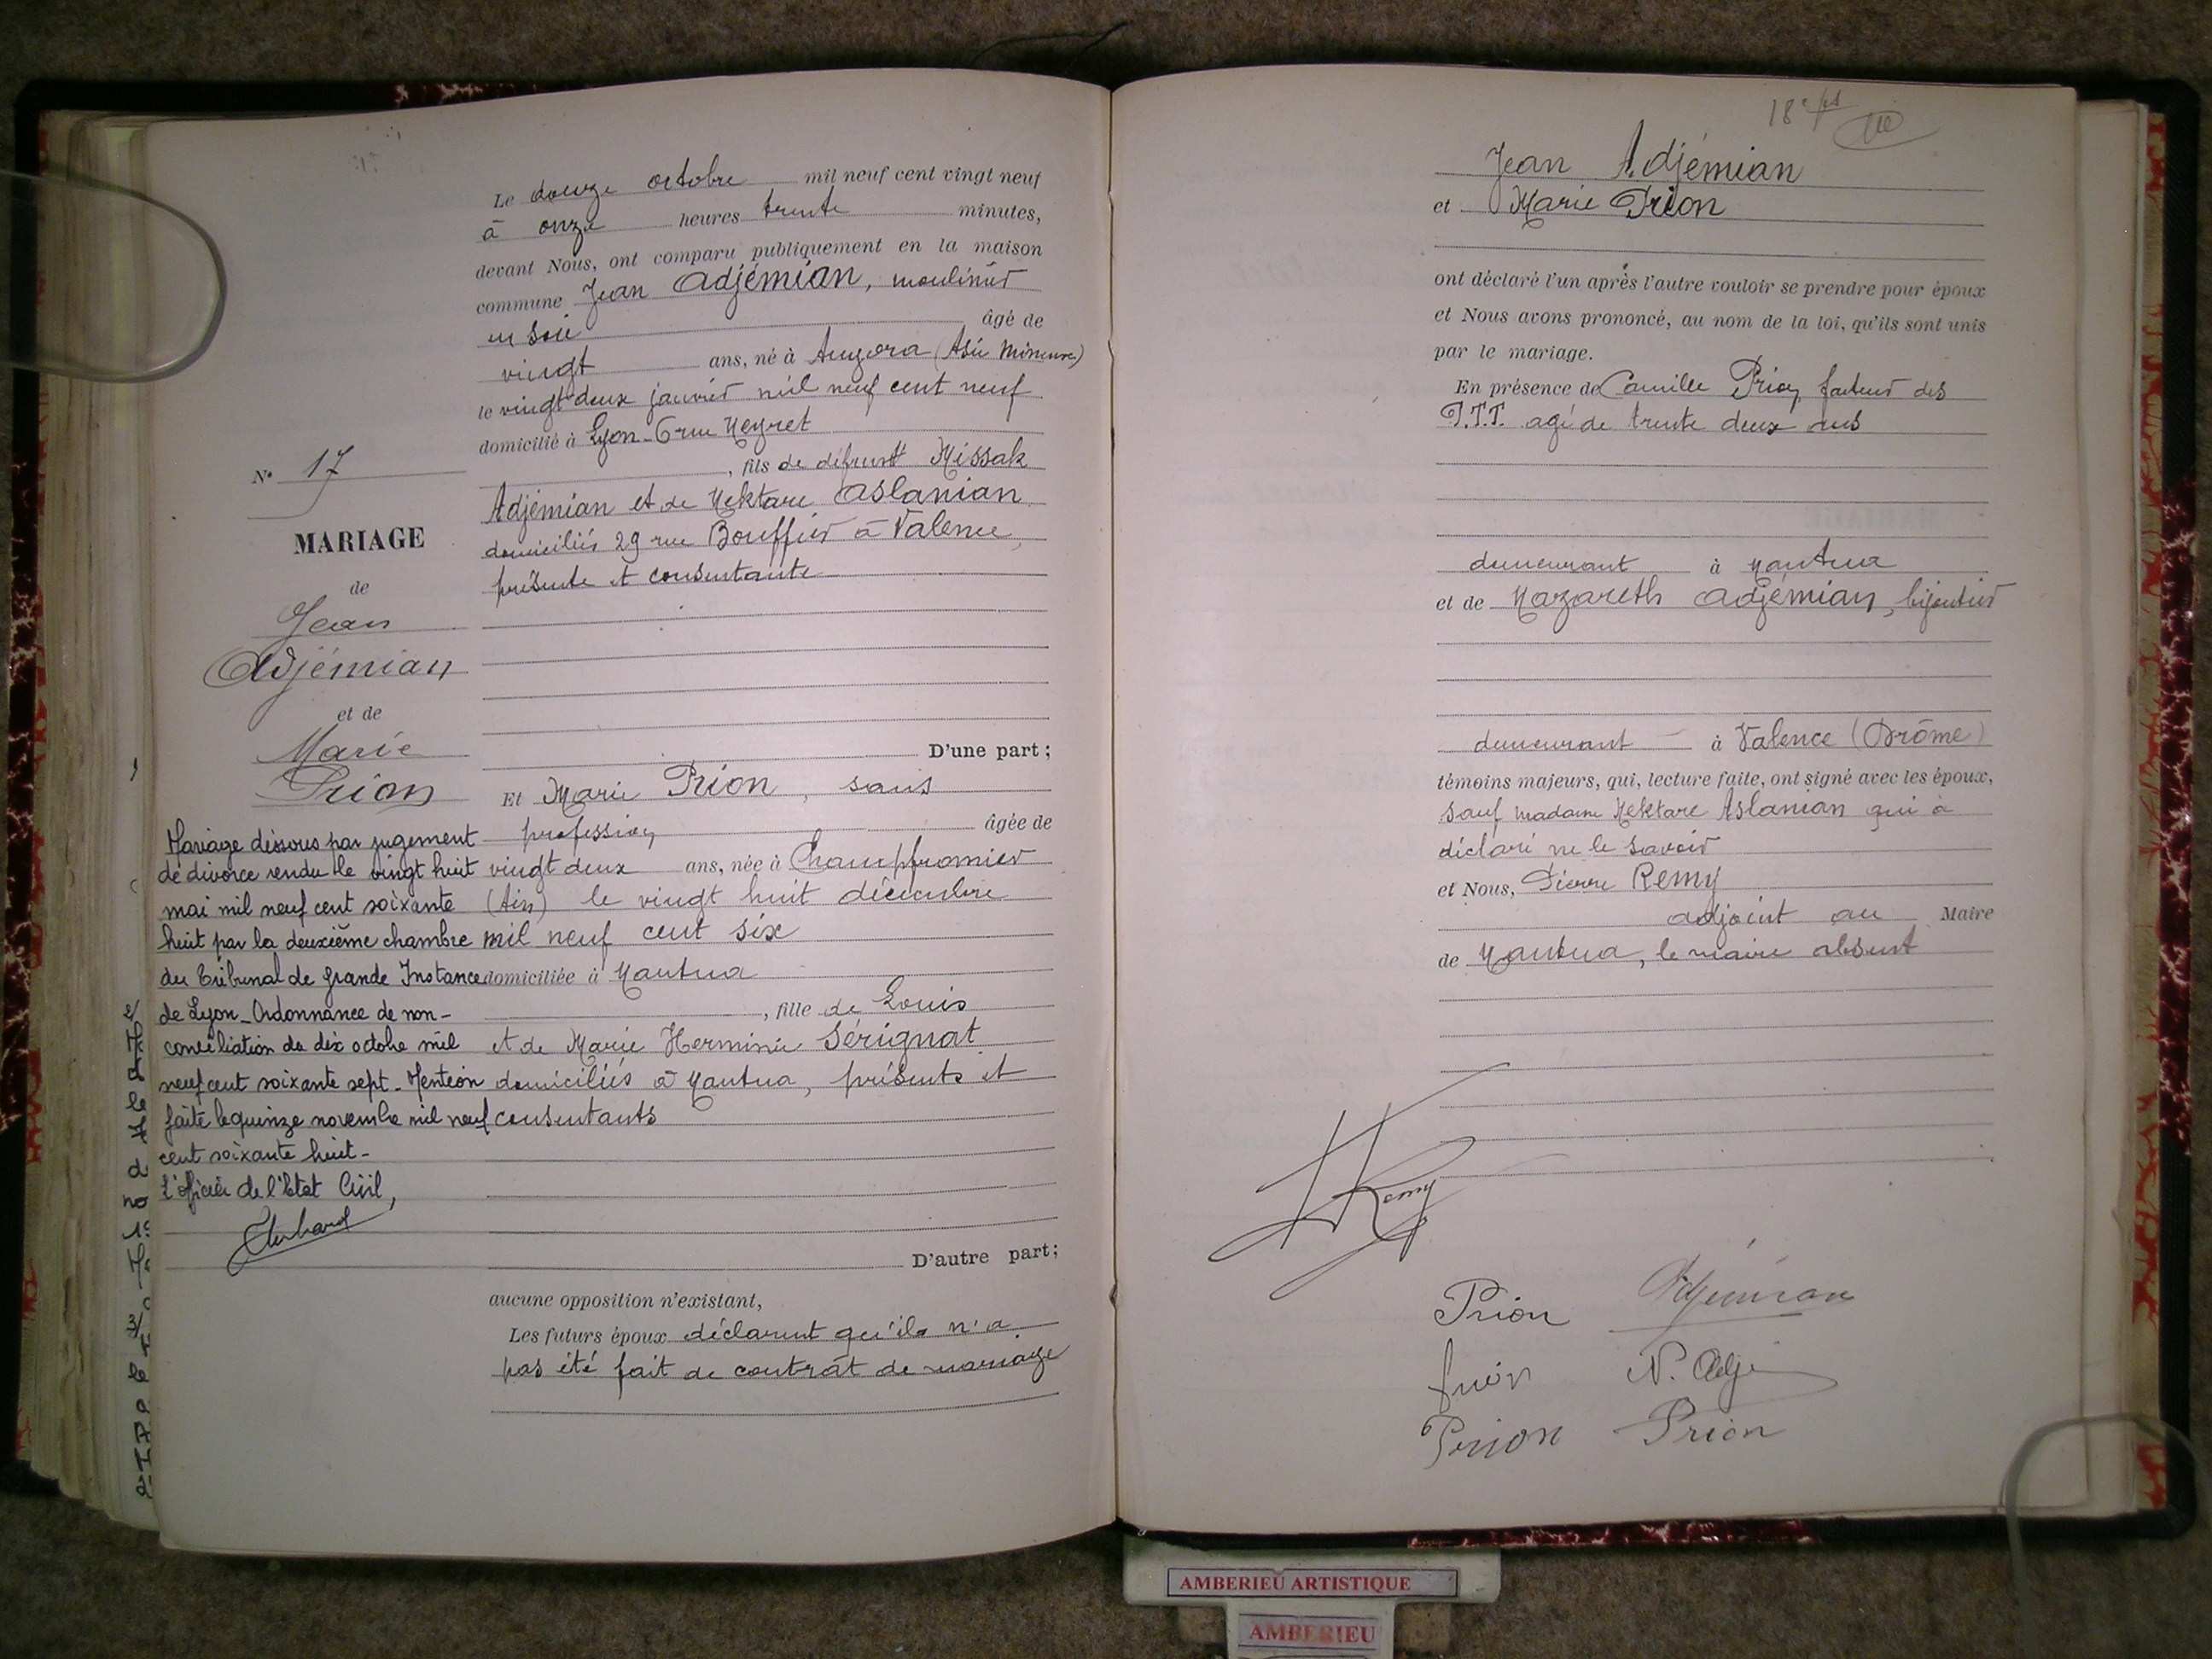 N° 17
MARIAGE
de
Jean
Adjémian
et de
Marie
Prion
Mariage dissous par jugement
de divorce rendu le vingt huit
mai mil neuf cent soixante
huit par la deuxième chambre
du Tribunal de Grande Instance
de Lyon - Ordonnance de non-
conciliation du dix octobre mil
neuf cent soixante sept - Mention
faite le quinze novembre mil neuf
cent soixante huit -
L'officier de l'Etat Civil,
Le douze octobre mil neuf cent vingt neuf
à onze heures trente minutes,
devant Nous, ont comparu publiquement en la maison
commune Jean Adjémian, moulinier
en soie âgé de
vingt ans, né à Angora (Asie Mineure)
le vingt deux janvier mil neuf cent neuf
domicilié à Lyon - 6 rue Neyret
, fils de défunt Missak
Adjémian et de Nektare Aslanian
domiciliés 29 rue Bouffier à Valence,
présente et consentante
D'une part;
Et Marie Prion, sans
profession âgée de
vingt deux ans, née à Champfromier
(Ain) le vingt huit décembre
mil neuf cent six
domiciliée à Nantua
, fille de Louis
et de Marie Herminie Sérignat
domiciliés à Nantua, présents et
consentants
D'autre part;
aucune opposition n'existant,
Les futurs époux déclarent qu'il n'a
pas été fait de contrat de mariage
Jean Adjémian
et Marie Prion
ont déclaré l'un après l'autre vouloir se prendre pour époux
et Nous avons prononcé, au nom de la loi, qu'ils sont unis
par le mariage.
En présence de Camille Prion, facteur des
P.T.T. agé de trente deux ans
demeurant à Nantua
et de Nazareth Adjémian, bijoutier
demeurant à Valence (Drôme)
témoins majeurs, qui, lecture faite, ont signé avec les époux,
sauf madame Nektare Aslanian qui a
déclaré ne le savoir
et Nous, Pierre Remy
adjoint au Maire
de Nantua, le maire absent
Remy
Prion Adjémian
N. Adje
Prion Prion
AMBERIEU ARTISTIQUE
AMBERIEU